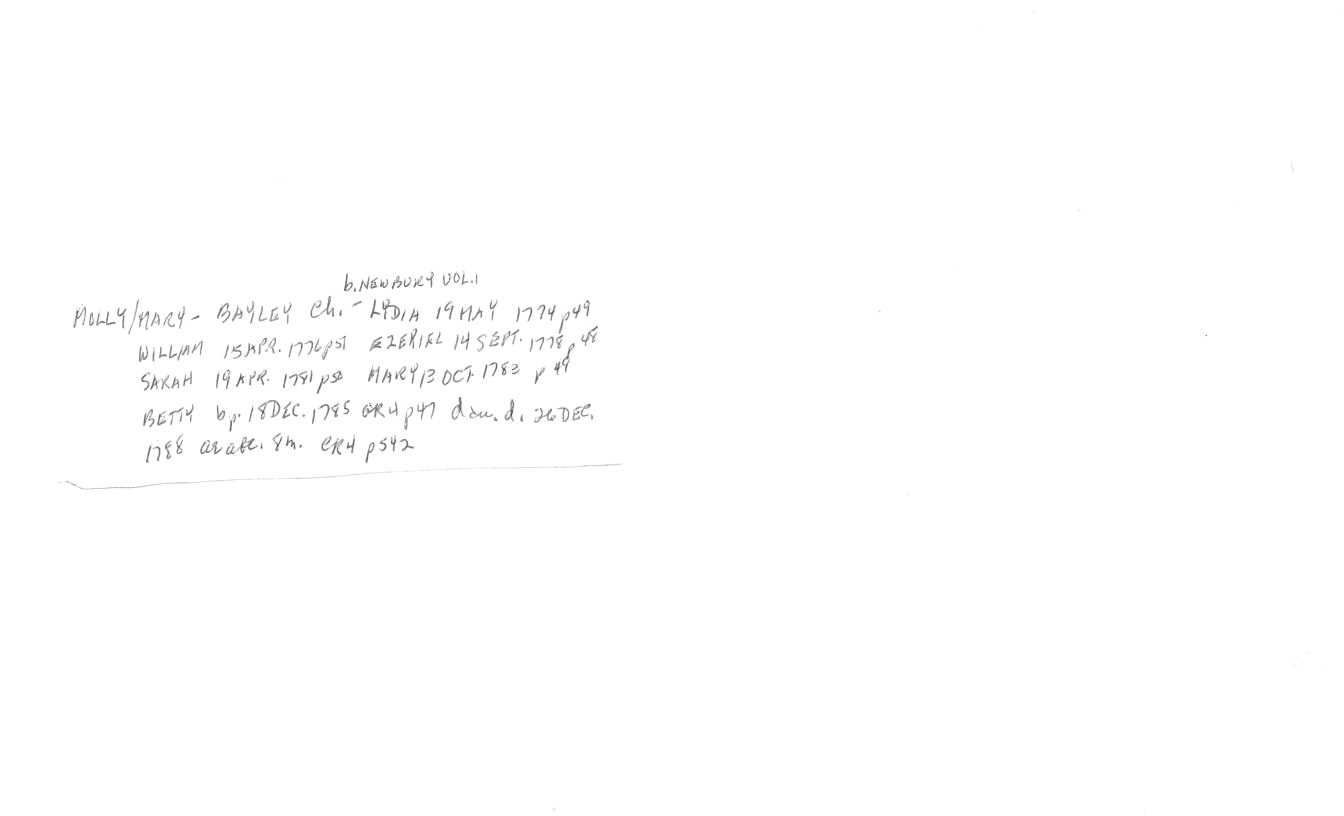 b. NEWBURY VOL. 1
MOLLY/MARY - BAYLEY Ch. - LYDIA 19 MAY 1774 p49
WILLIAM 15 APR. 1776 p51 EZEKIEL 14 SEPT. 1778 p48
SARAH 19 APR. 1781 p50 MARY 13 OCT. 1783 p 49
BETTY bp. 18 DEC. 1785 CR4 p47 dau. d. 26 DEC.
1788 8m. CR4 p542